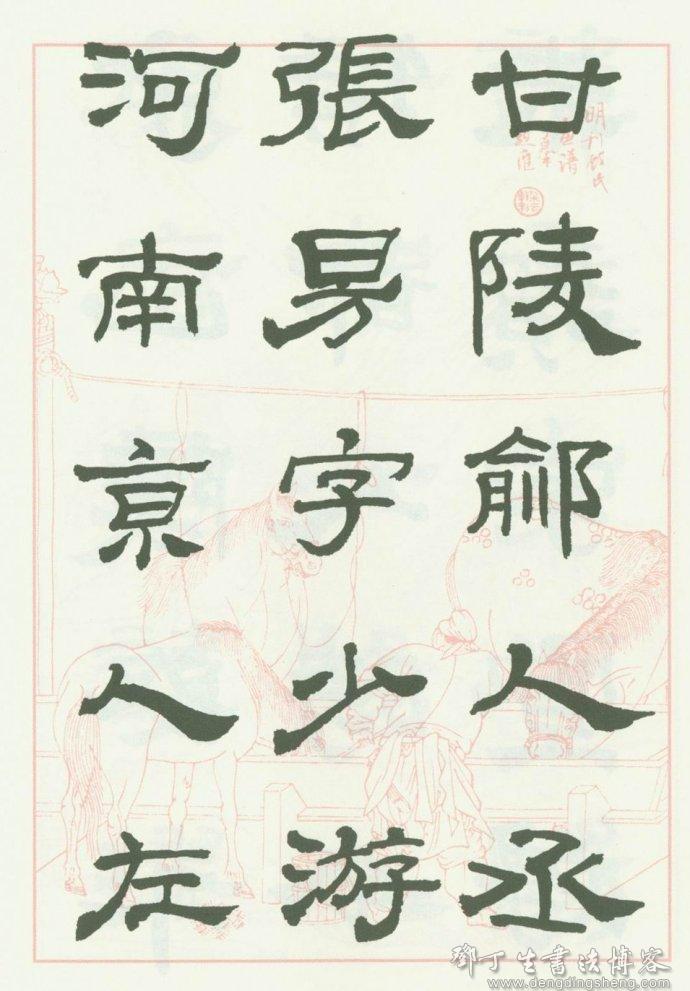 甘陵鄃人丞
張字少游
河南亰人左
明刊顧氏
畫譜
鄧丁生書法博客
www.dengdingsheng.com